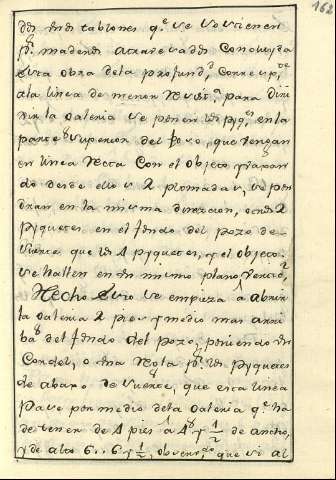 162
dos en los tablones q.e se sostienen en
maderos atravesados Concluyda
esta obra de la profund.d corresp.te
a la linea de menor resist.a para Diri
gir la Galeria se ponen dos pyq.es en la
parte superior del Pozo, que vengan
en linea recta Con el objeto
do desde ellos 2 plomadas, se pon
dran en la misma direccion, otros 2
pyquetes en el fondo del pozo de
suerte que los 4 pyquetes, y el objeto
se hallen en un mismo plano Vertic.l
Hecho esto se empieza à abrir
la Galeria 2 pies y medio mas arri
ba del fondo del pozo, poniendo un
Cordel, o una regla los pyquetes
de abaxo de suerte, que esta linea
pase por medio de la Galeria q.e ha
de tener de 4 pies à 4 y 1/2 de ancho,
y de alto 6.. 6 y 1/2, observ.do que si al